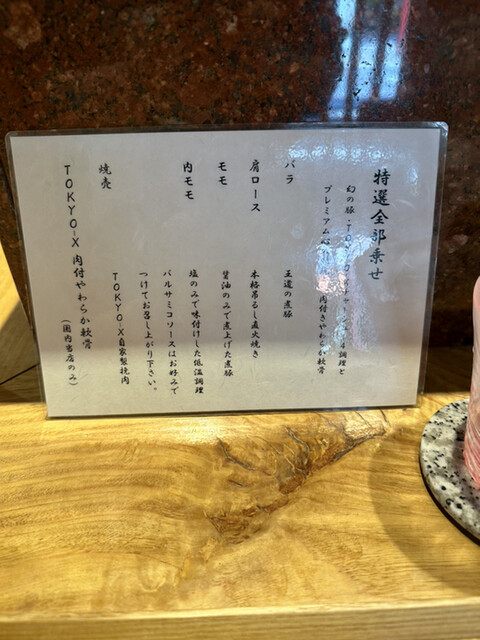 特選全部乗せ
幻の豚・TOKYO
4調理と
プレミアム
肉付きやわらか軟骨
バラ 王道の煮豚
肩ロース 本格吊るし直火焼き
モモ 醤油のみで煮上げた煮豚
内モモ 塩のみで味付けした低温調理
バルサミコソースはお好みで
つけてお召し上がり下さい。
焼売 TOKYO-X自家製挽肉
TOKYO-X 肉付やわらか軟骨
(国内当店のみ)